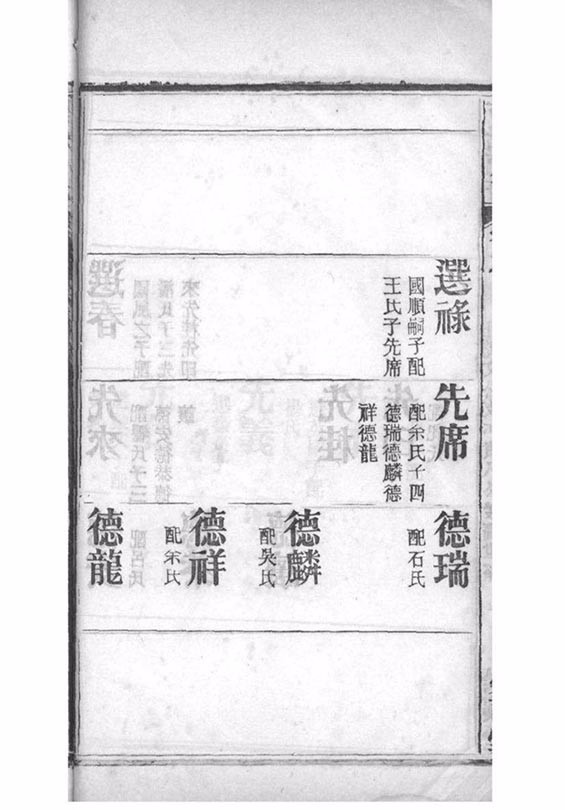 選祿
國順嗣子配
王氏子先席
先席
配余氏子四
德瑞德麟德
祥德龍
德瑞
配石氏
德麟
配吳氏
德祥
配余氏
德龍